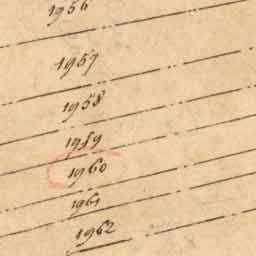 1956
1957
1958
1959
1960
1961
1962